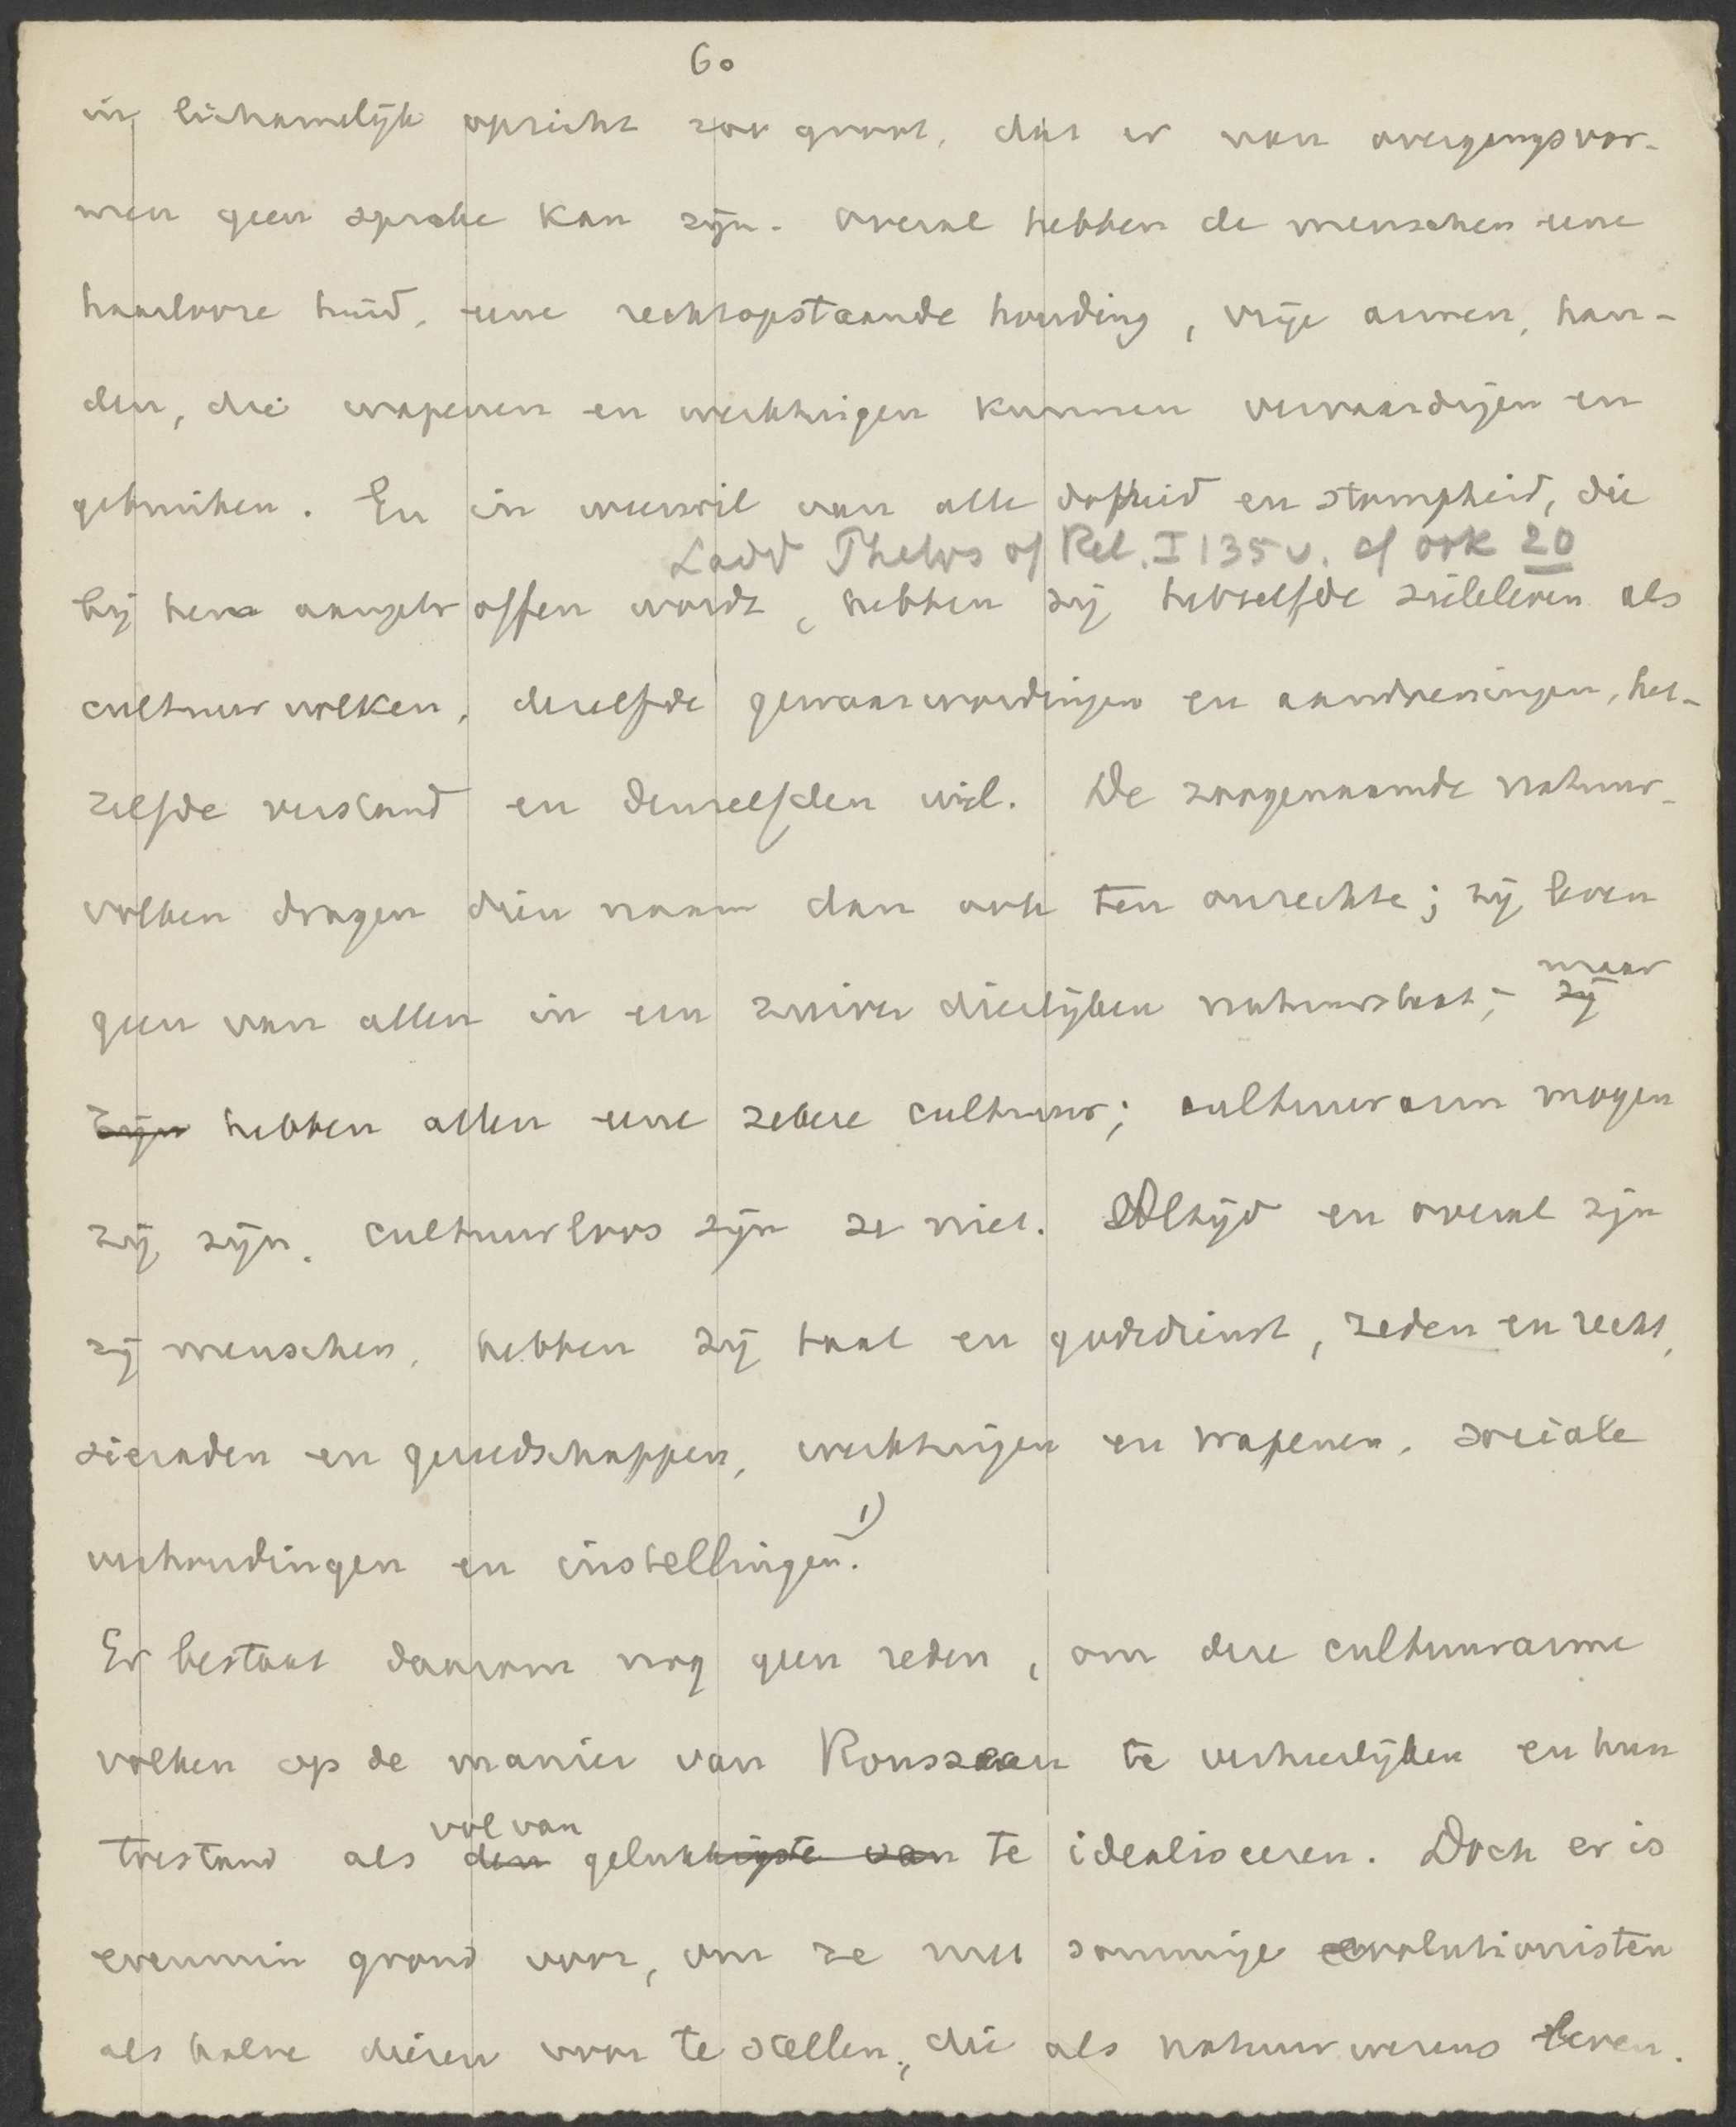 60
in lichamelijk opzicht zoo groot, dat er van overgangsvor-
men geen sprake kan zijn. Overal hebben de menschen eene
haarlooze huid, eene rechtopstaande houding, vrije armen, han-
den, die wapenen en werktuigen kunnen vervaardigen en
gebruiken. En in weerwil van alle dofheid en stompheid, die
Ladd Philos of Rel. I 135 v. cf ook 20
bij hen aangetroffen wordt, hebben zij hetzelfde zieleleven als
cultuurvolken, dezelfde gewaarwordingen en aandoeningen, het-
zelfde verstand en denzelfden wil. De zoogenaamde natuur-
volken dragen dien naam dan ook ten onrechte; zij leven
maar
geen van allen in een zuiver dierlijken natuurstaat; zij
zijn hebben allen eene zekere cultuur; cultuurarm mogen
zij zijn, cultuurloos zijn ze niet. Altijd en overal zijn
zij menschen, hebben zij taal en godsdienst, zeden en recht,
sieraden en gereedschappen, werktuigen en wapenen, sociale
verhoudingen en instellingen. 1)
Er bestaat daarom nog geen reden, om deze cultuurarme
volken op de manier van Rousseau te verheerlijken en hun
vol van
toestand als den gelukkigste van te idealiseeren. Doch er is
evenmin grond voor, om ze met sommige evolutionisten
als halve dieren voor te stellen, die als natuurwezens leven.